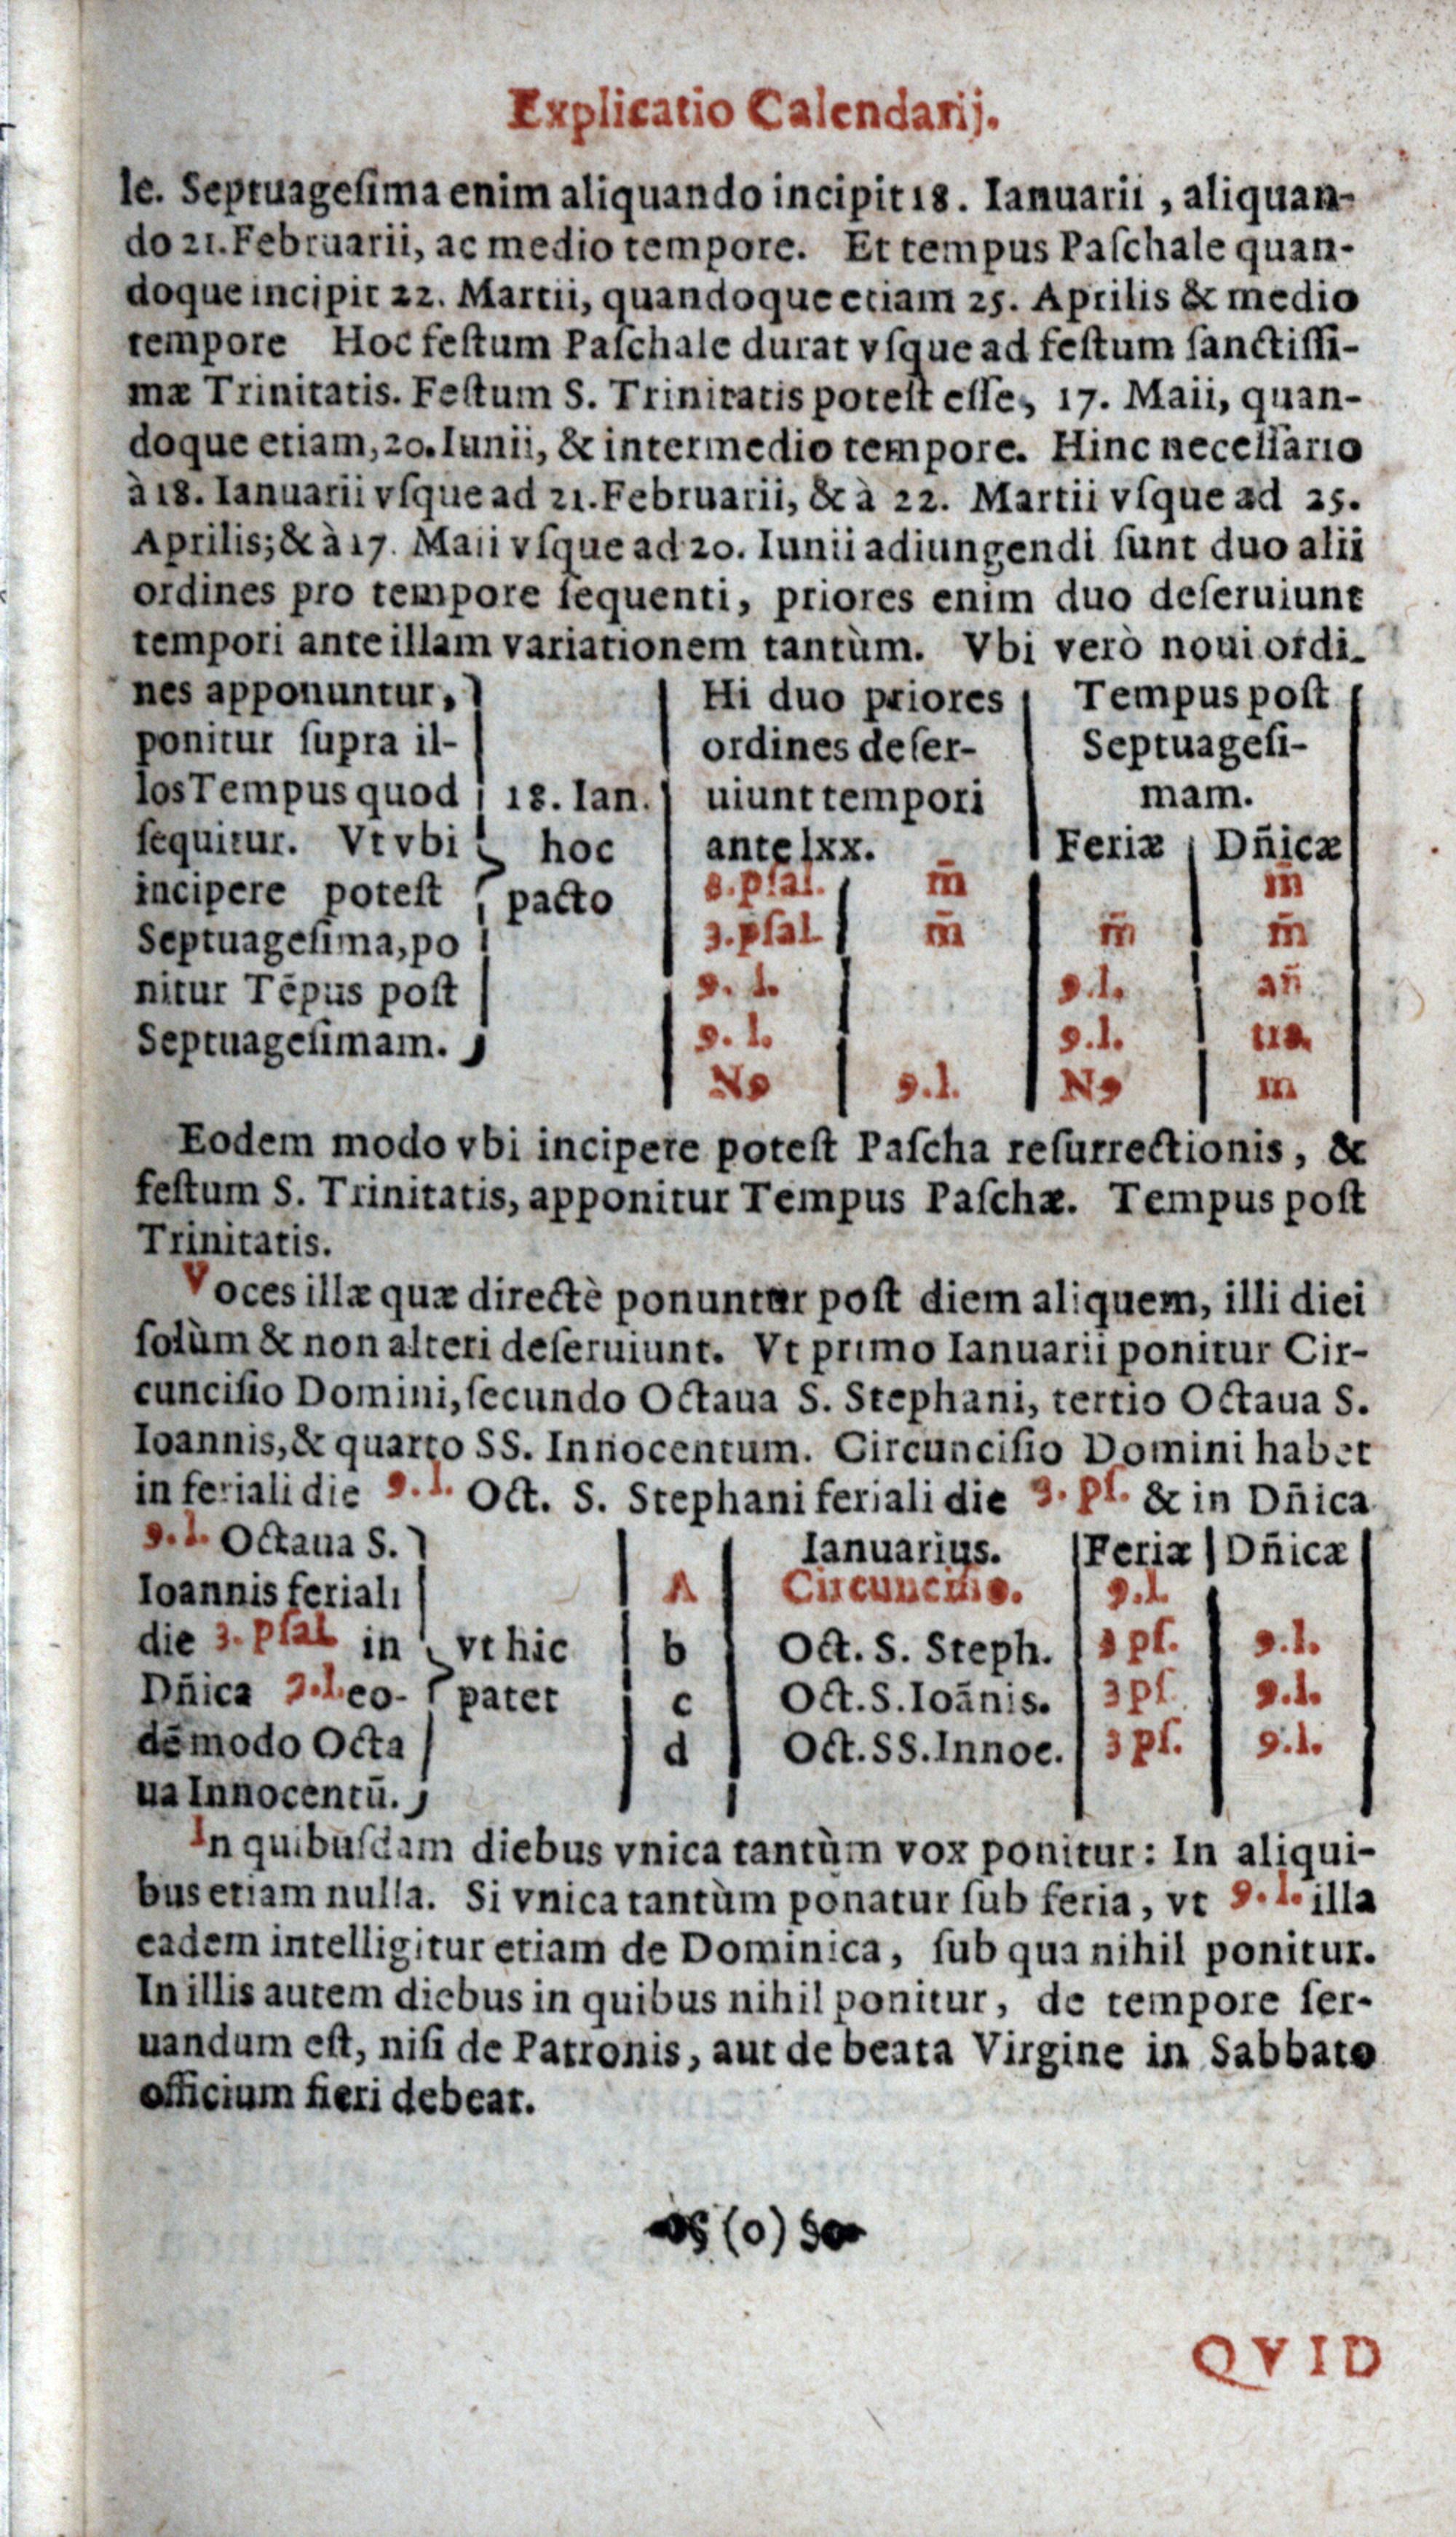 Explicatio Calendarij.
le. Septuageſima enim aliquando incipit 18. Ianuarii, aliquan-
do 21. Februarii, ac medio tempore. Et tempus Paſchale quan-
doque incipit 22. Martii, quandoque etiam 25. Aprilis & medio
tempore Hoc feſtum Paſchale durat vſque ad feſtum ſanctiſſi-
mæ Trinitatis. Feſtum S. Trinitatis poteſt eſſe, 17. Maii, quan-
doque etiam, 20. Iunii, & intermedio tempore. Hinc neceſſario
à 18. Ianuarii vſque ad 21. Februarii, & à 22. Martii vſque ad 25.
Aprilis; & à 17. Maii vſque ad 20. Iunii adiungendi ſunt duo alii
ordines pro tempore ſequenti, priores enim duo deſeruiunt
tempori ante illam variationem tantùm. Vbi verò noui ordi-
nes apponuntur,
ponitur ſupra il-
los Tempus quod
ſequitur. Vt vbi
incipere poteſt
Septuageſima, po
nitur Tẽpus poſt
Septuageſimam.
18. Ian.
hoc
pacto
Hi duo priores
ordines deſer-
uiunt tempori
ante lxx.
Tempus poſt
Septuageſi-
mam.
Feriæ Dñicæ
8. pſal. m̄ m̄
3. pſal m̄ m̄ m̄
9. l. 9.l. añ
9. l. 9.l. tia.
N9 9.l. N9 m
Eodem modo vbi incipere poteſt Paſcha reſurrectionis, &
feſtum S. Trinitatis, apponitur Tempus Paſchæ. Tempus poſt
Trinitatis.
Voces illæ quæ directè ponuntur poſt diem aliquem, illi diei
ſolùm & non alteri deſeruiunt. Vt primo Ianuarii ponitur Cir-
cunciſio Domini, ſecundo Octaua S. Stephani, tertio Octaua S.
Ioannis, & quarto SS. Innocentum. Circunciſio Domini habet
in feriali die 9. l. Oct. S. Stephani feriali die 3. pſ. & in Dñica
9. l. Octaua S.
Ioannis feriali
die 3. pſal in
Dñica 9.l. eo-
dẽ modo Octa
ua Innocentũ.
vt hic
patet
Ianuarius. Feriæ Dñicæ
A Circunciſio. 9.l.
b Oct. S. Steph. 3 pſ. 9.l.
c Oct. S. Ioãnis. 3 pſ. 9.l.
d Oct. SS. Innoc. 3 pſ. 9.l.
In quibuſdam diebus vnica tantùm vox ponitur: In aliqui-
bus etiam nulla. Si vnica tantùm ponatur ſub feria, vt 9. l. illa
eadem intelligitur etiam de Dominica, ſub qua nihil ponitur.
In illis autem diebus in quibus nihil ponitur, de tempore ſer-
uandum eſt, niſi de Patronis, aut de beata Virgine in Sabbato
officium fieri debeat.
§ (o) §
QVID